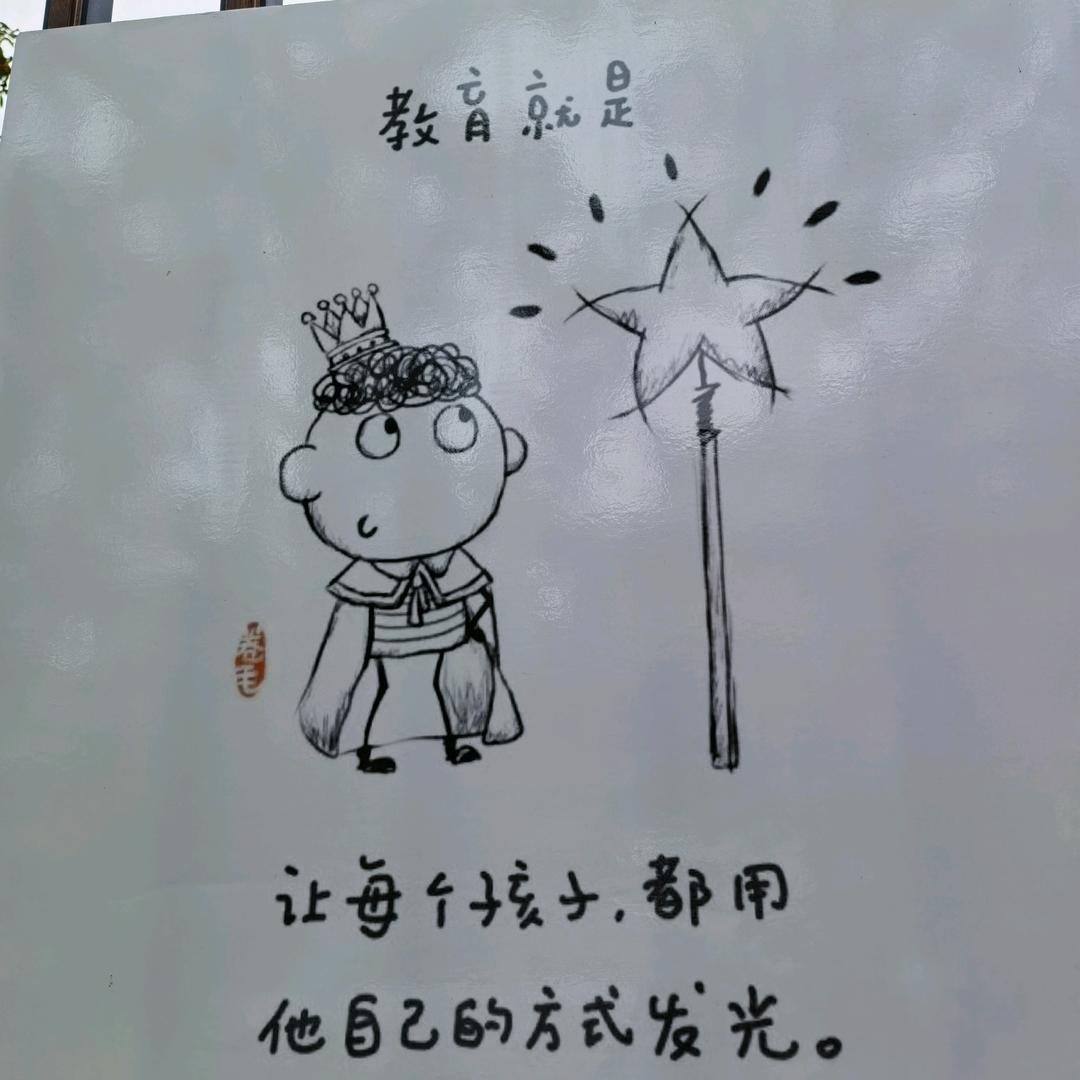 教育就是
卷毛
让每个孩子,都用
他自己的方式发光。